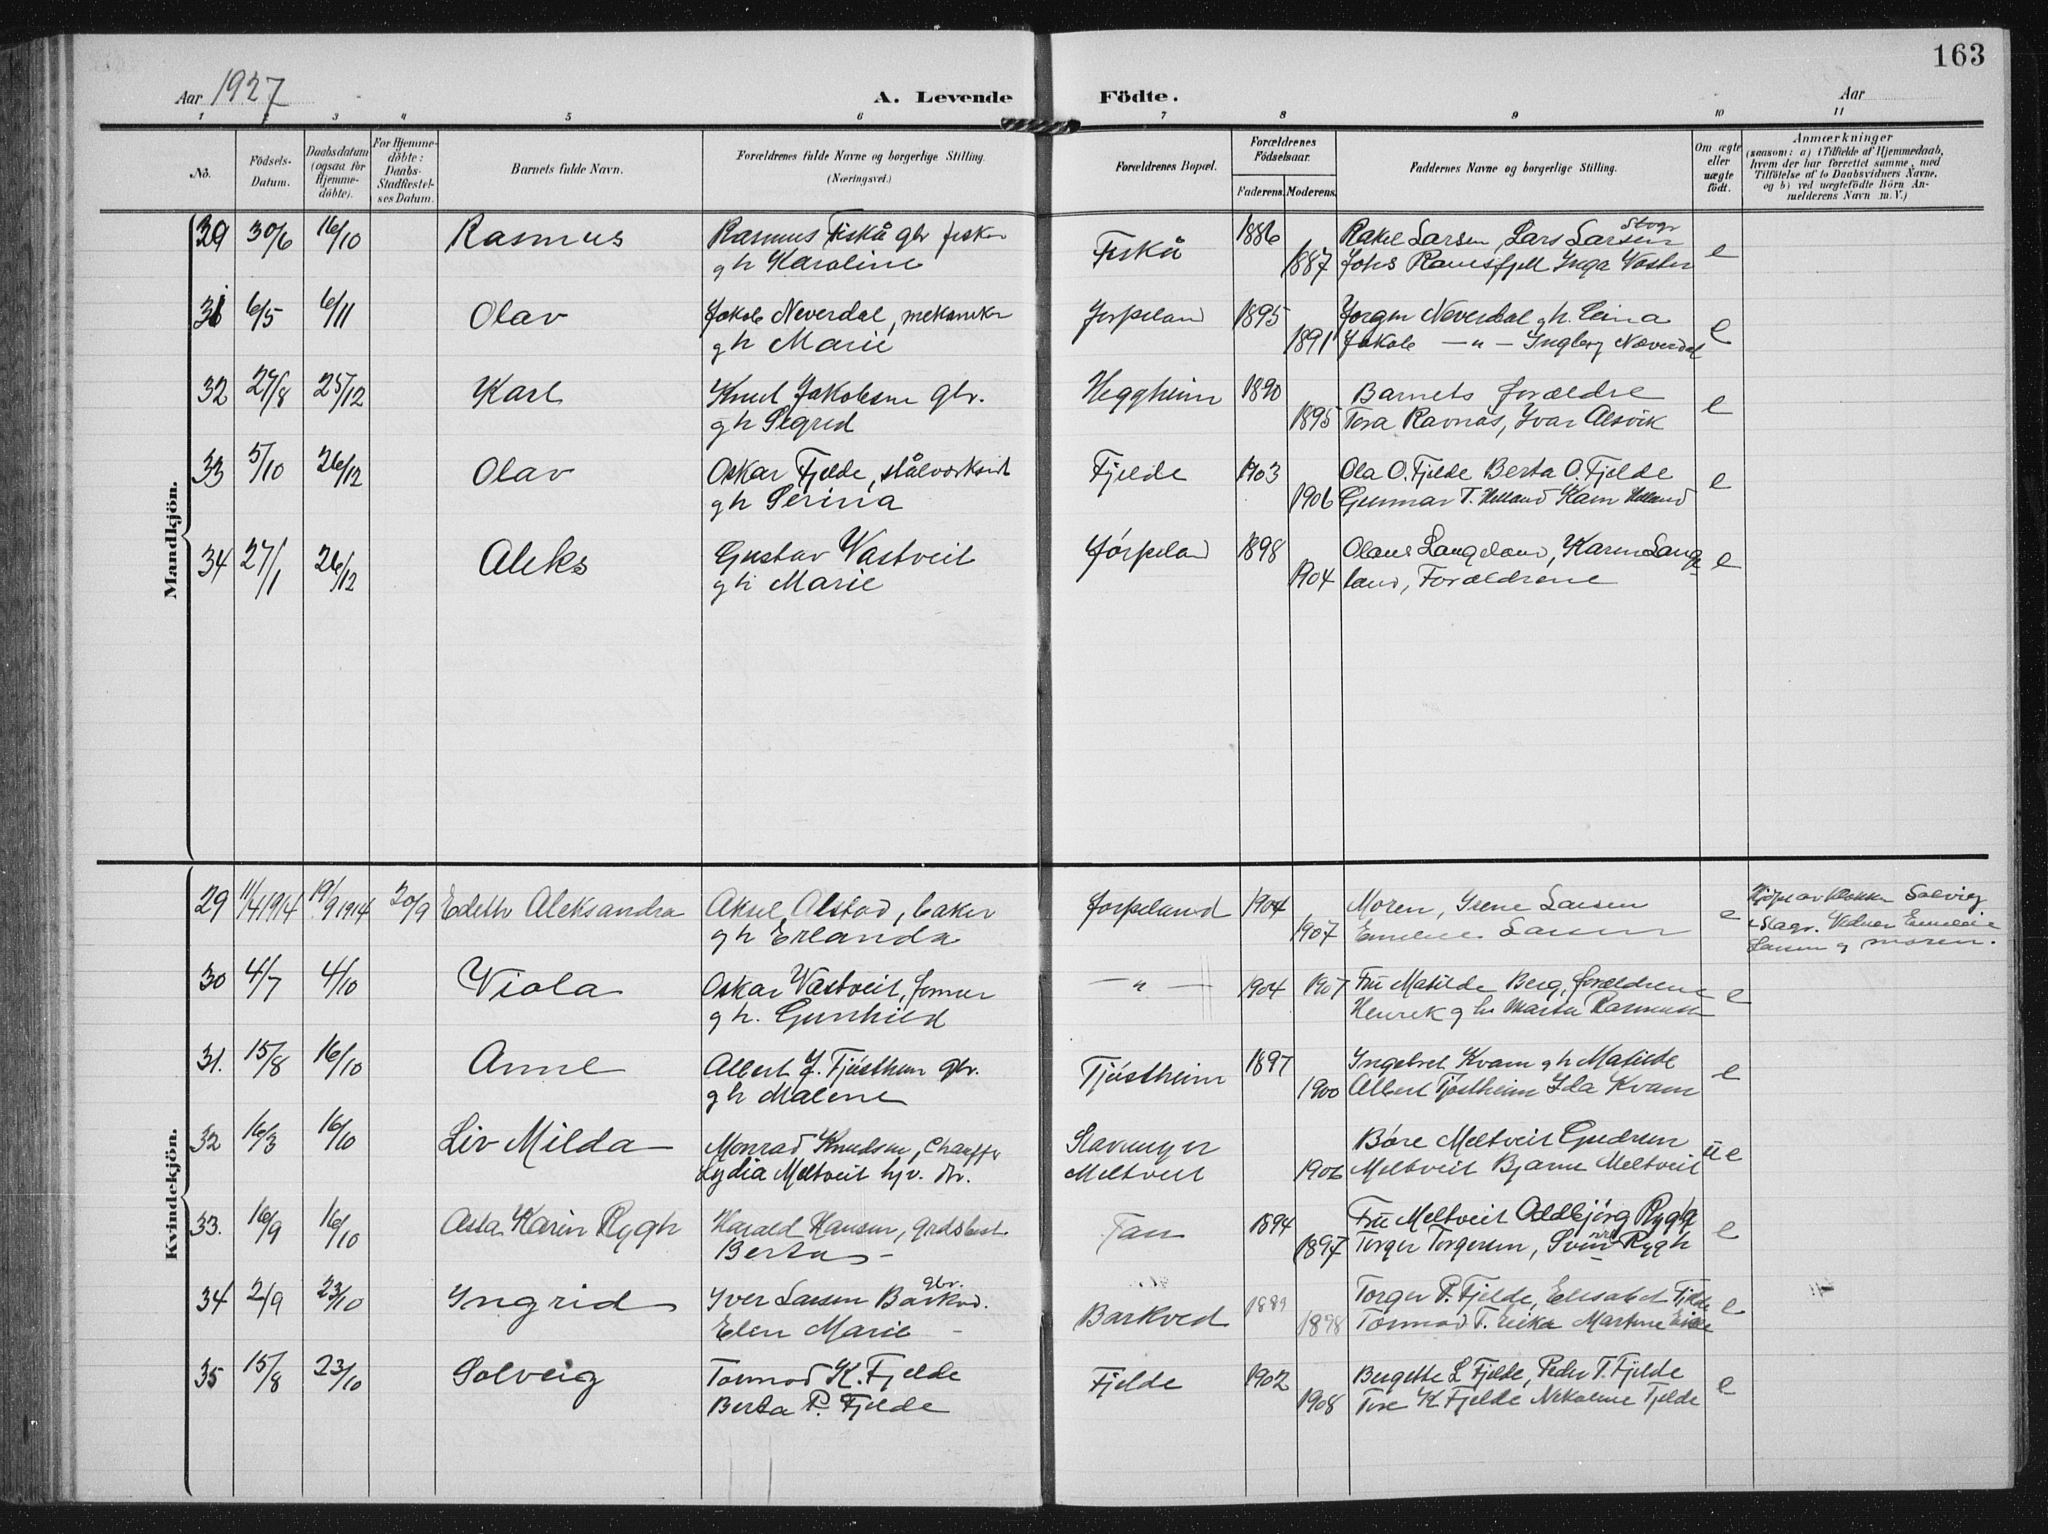 163
Aar 1927 A. Levende Födte. Aar
1 2 3 4 5 6 7 8 9 10 11
No. Födsels-Datum. Daabsdatum (ogsaa for Hjemmedöbte). For Hjemmedöbte: Daabs-Stadfæstelses Datum. Barnets fulde Navn. Forældrenes fulde Navne og borgerlige Stilling. (Næringsvei.) Forældrenes Bopæl. Forældrenes Födselsaar. Faderens. Moderens. Faddernes Navne og borgerlige Stilling. Om ægte eller uægte födt. Anmærkninger (saasom: a) i Tilfælde af Hjemmedaab, hvem der har forrettet samme, med Tilföielse af to Daabsvidners Navne, og b) ved uægtefödte Börn Anmelderens Navn m. V.)
Mandkjön.
39 30/6 16/10 Rasmus Rasmus Fiskå gbr fisker Fiskå 1886 Rakel Larsen, Lars Larsen e
gh Karoline 1887 Johs Ramsfjell Inga
31 6/5 6/11 Olav Jakob Neverdal, mekaniker Jørpeland 1895 Jørgen Neverdal gh. e
gh Marie 1891 Jakob — " — Ingborg Neverdal
32 27/8 25/12 Karl Knut Jakobsen gbr. Heggheim 1890 Barnets forældre e
gh Sigrid 1895 Tora Ravnås, Ivar Alsvik
33 5/10 26/12 Olav Oskar Fjelde, stålverksarb Fjelde 1903 Ola O. Fjelde Berta O. Fjelde e
gh Serina 1906 Gunnar T. Helland Helland
34 27/1 26/12 Aleks Gustav Vastveit Jørpeland 1898 Olaus Langeland, Karen Lange e
gh Marie 1904 land, Forældrene
Kvindekjön.
29 11/4 1914 19/9 1914 20/9 Edith Aleksandra Aksel Alstad, baker Jørpeland 1904 Moren, Irene Larsen e
gh Erlanda 1907 Emelie Larsen Larsen og moren.
30 4/7 4/10 Viola Oskar Vastveit, former — " — 1904 1907 Fru Matilde Berg, forældrene e
gh. Gunhild Henrik gh Marta
31. 15/8 16/10 Anne Albert J. Tjøstheim gbr. Tjøstheim 1897 Ingebret Kvam gh Matilde e
gh Malene 1900 Albert Tjøstheim Ida Kvam
32 16/3 16/10 Liv Milda Monrad Knudsen, Chauffør Stavanger Børe Meltveit Gudrun u e
Lydia Meltveit hjv. dtr. Meltveit 1906 Meltveit Bjarne Meltveit
33. 16/9 16/10 Asta Karin Rygh Harald Hansen, grdsbest. Tau 1894 Fru Meltveit Oddbjörg Rygh e
Berta — 1897 Torger Torgersen, Svein Rygh
34 2/9 23/10 Ingrid Iver Larsen Barkved. gbr. Barkved 1889 Torger P. Fjelde, Elisabet Fjelde e
Elen Marie — 1898 Tormod T. Eika Martine
35 15/8 23/10 Solveig Tormod K. Fjelde Fjelde 1902 Bergette L Fjelde, Peder T. Fjelde e
Berta P. Fjelde 1908 Tore K Fjelde Nikoline Fjelde